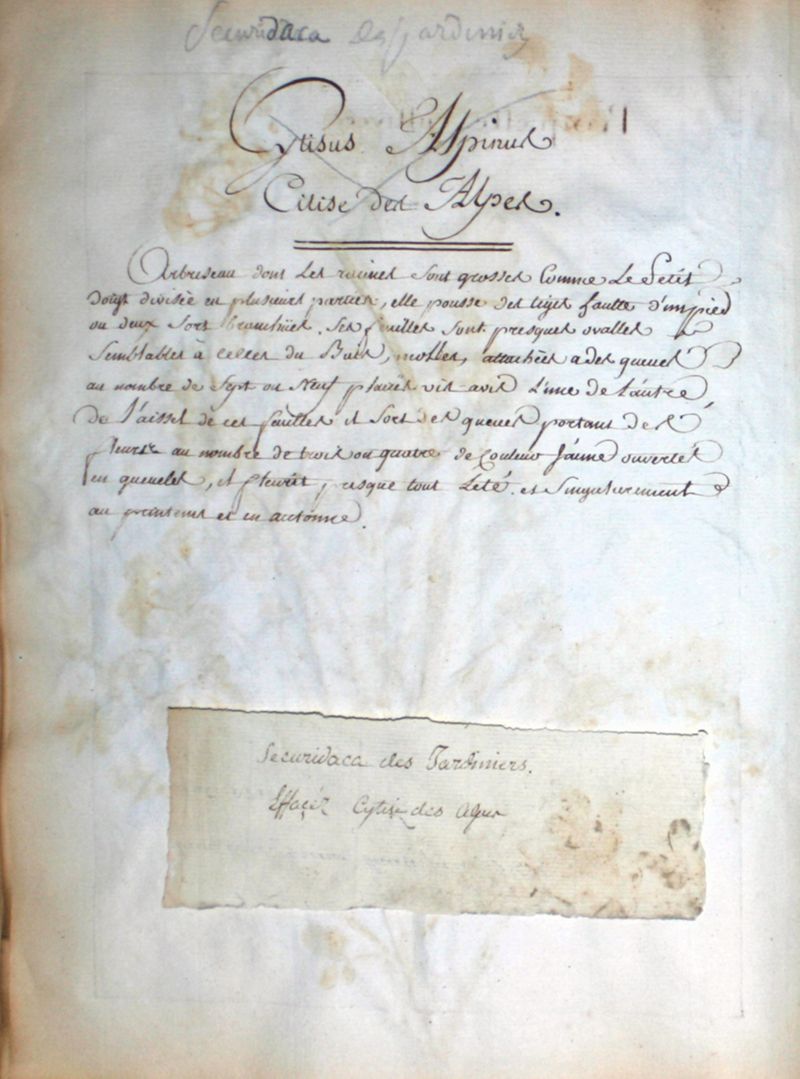 Securidaca des Jardiniers
Cytisus Alpinus
Citise des Alpes.
Arbriseau dont Les racines sont grosses Comme Le Petit
doigt divisée en plusieurs parties, elle pousse des tiges d'un pied
ou deux fort branchües. Ses feuilles sont presques ovalles
Semblables à celles du Buis, molles, attachées a des queues
au nombre de Sept ou Neuf vis avis L'une de L'autre,
De L'aissel de ces feuilles il Sort des queues portant des
fleurs au nombre de trois ou quatre de Couleur Jaune ouvertes
en gueules, il fleurit presque tout L'eté. et Singulierement
au printems et en automne.
Securidaca des Jardiniers.
Effacéz Cytise des Alpes